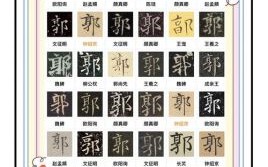 欧阳询 赵孟頫 颜真卿 陈琏 颜真卿 赵孟頫
郭 郭 郭 郭 郭 郭
文征明 钟绍京 颜真卿 王宠 文征明
郭 郭 郭 郭 郭 郭
魏碑 柳公权 郭尚先 王羲之 魏碑 成亲王
郭 郭 郭 郭 郭 郭
魏碑 欧阳询 颜真卿 钟绍京 欧阳询
郭 郭 郭 郭 郭 郭
赵孟頫 文征明 文征明 欧阳询 文征明